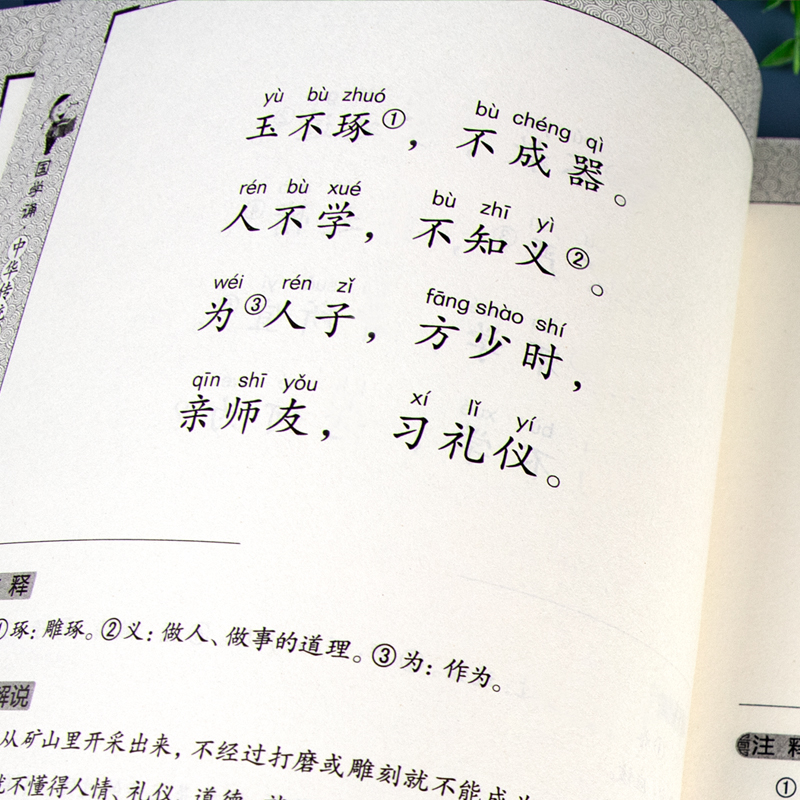 yù bù zhuó bù chéng qì
玉不琢①，不成器。
rén bù xué bù zhī yì
人不学，不知义②。
wéi rén zǐ fāng shào shí
为③人子，方少时，
qīn shī yǒu xí lǐ yí
亲师友，习礼仪。
释
①琢：雕琢。②义：做人、做事的道理。③为：作为。
解说
从矿山里开采出来，不经过打磨或雕刻就不能成为
就不懂得人情、礼仪、道德
国学诵·中华传统
注释
①